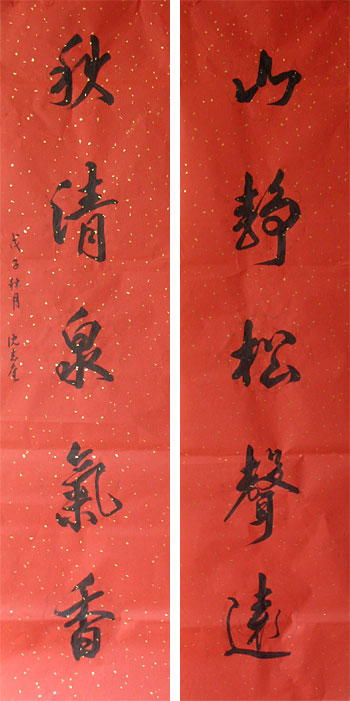 山靜松聲遠
秋清泉氣香
戊子秋月